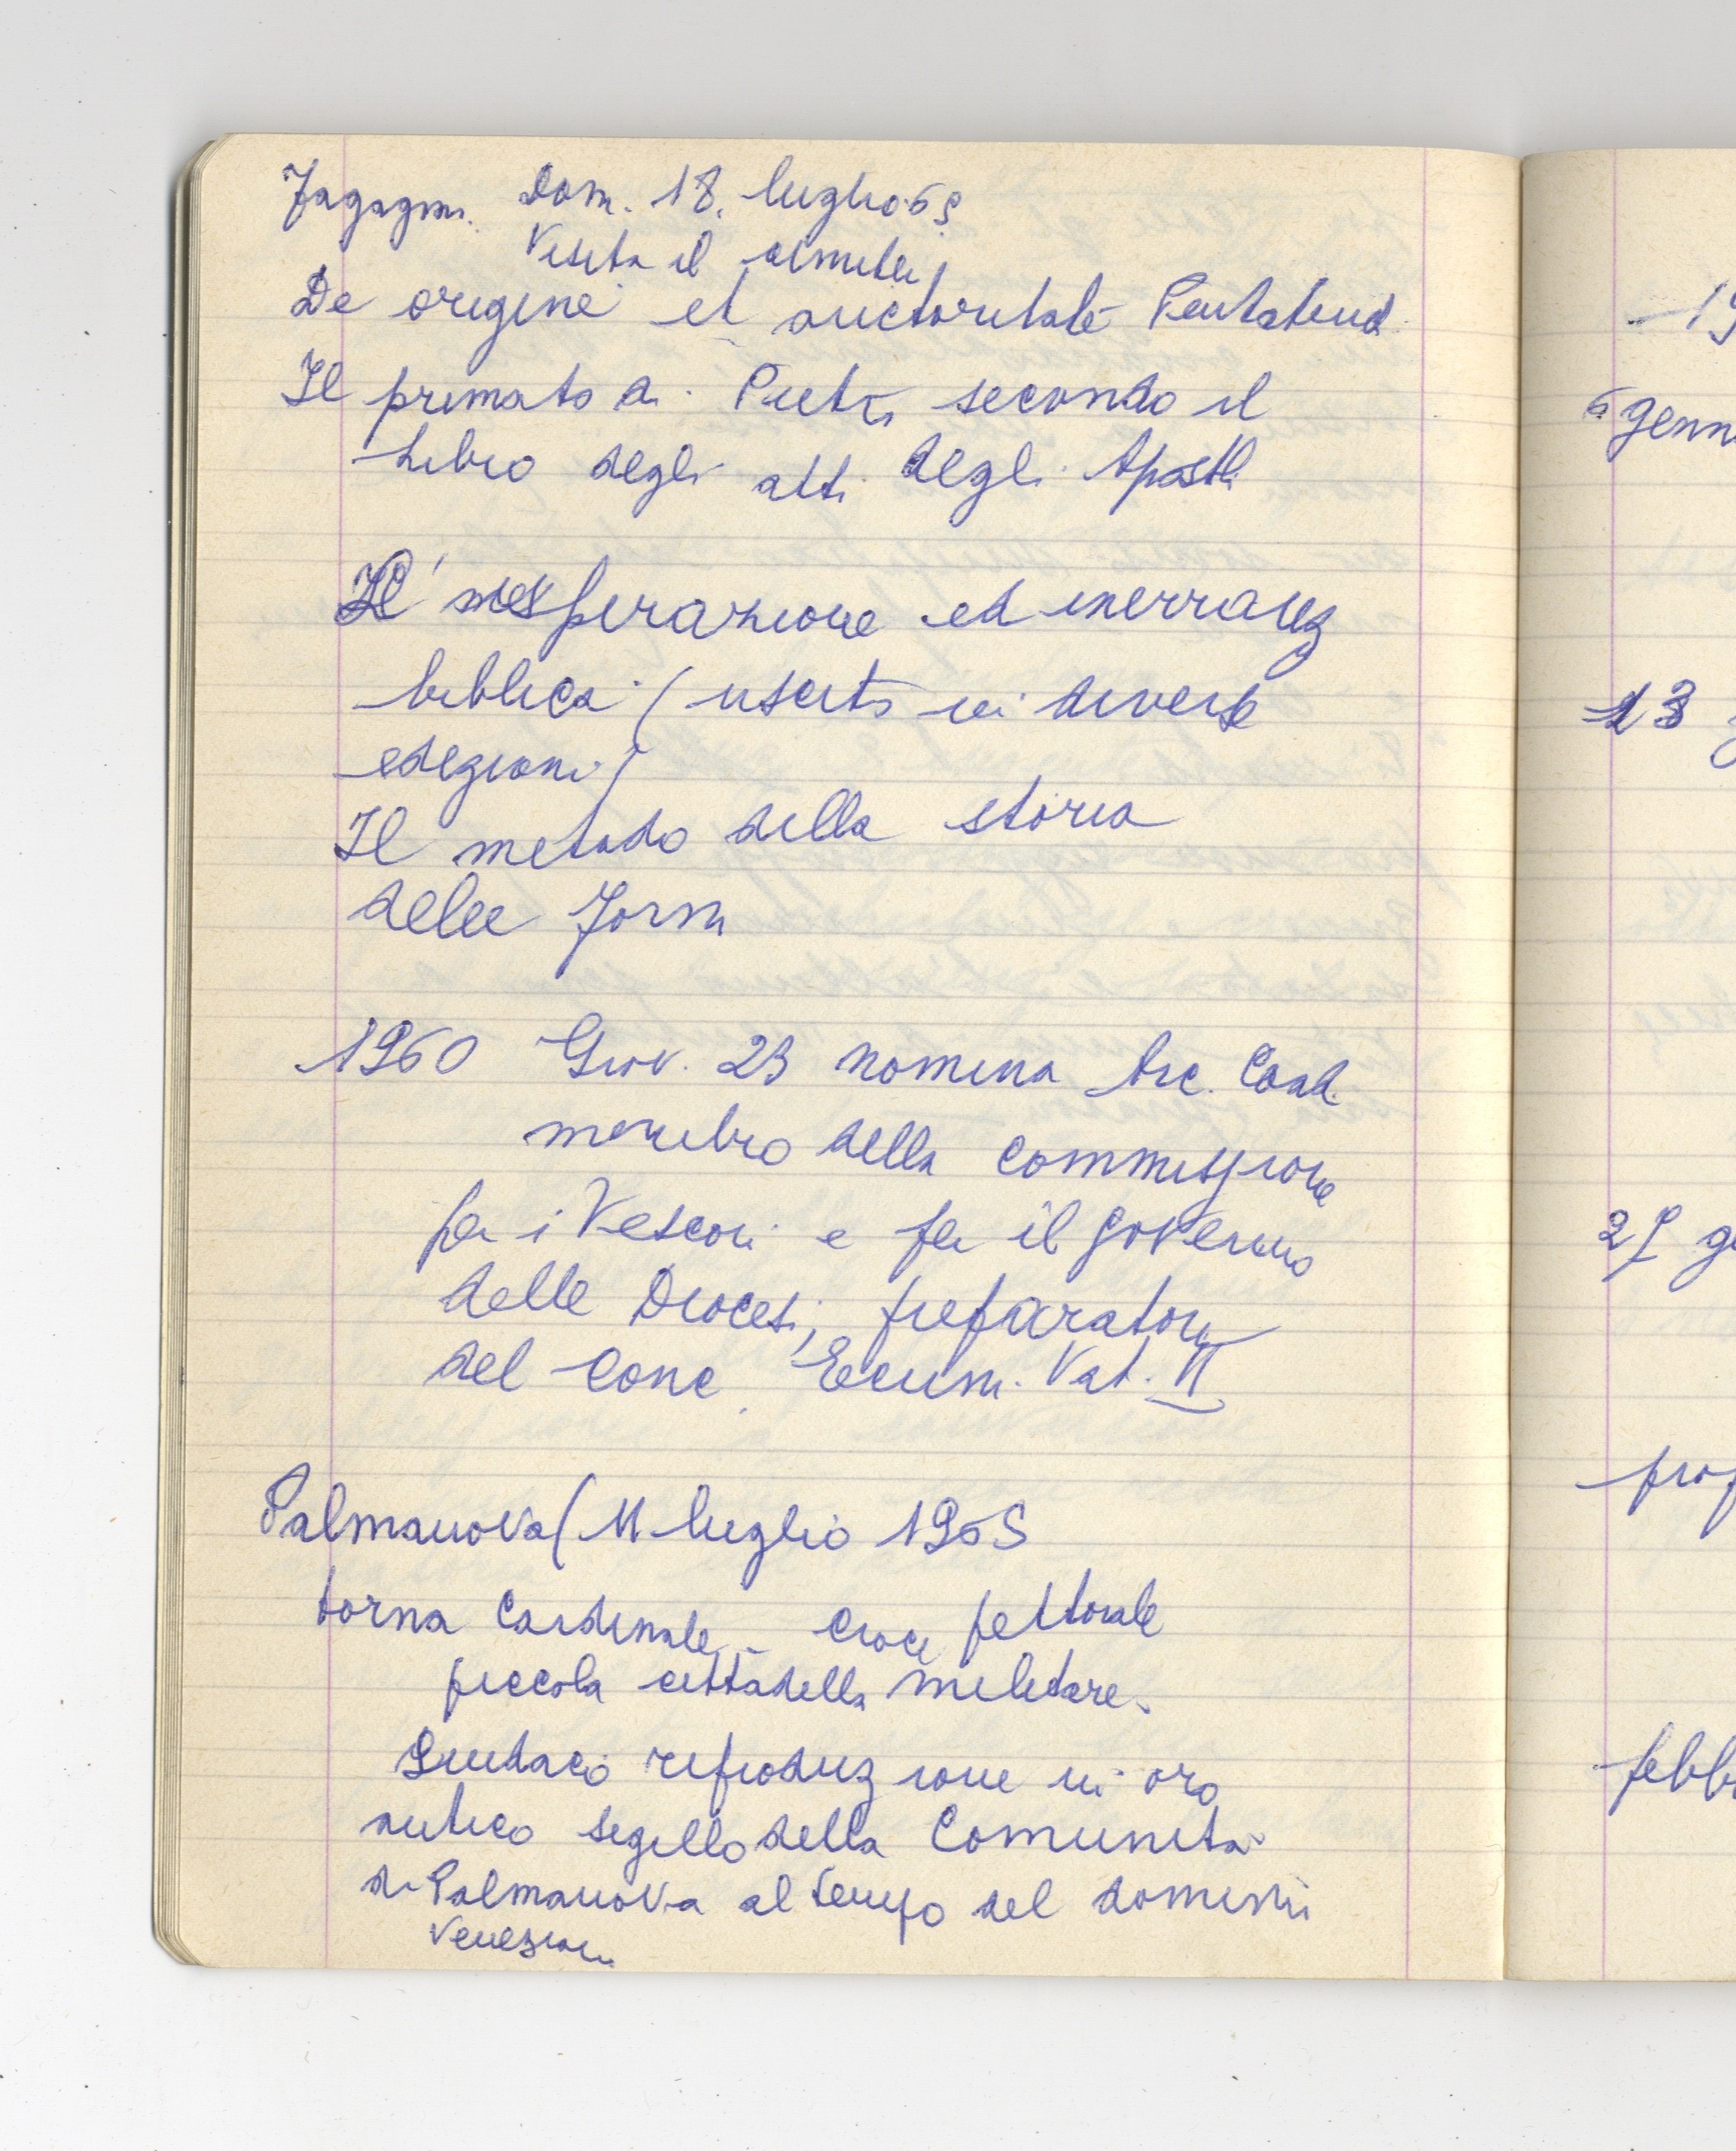 Fagagna. Dom. 18. luglio 65
Visita il cimitero
De origine et auctoritate Pentateuci
Il primato di Pietro secondo il
libro degli atti degli Apostoli
L'inspirazione ed inerranza
biblica (uscito in diverse
edizioni)
Il metodo della storia
delle forme
1960 Giov. 23 nomina Arc. Coad.
membro della commissione
per i Vescovi e per il governo
delle Diocesi, preparatoria
del Conc. Ecum. Vat. II
Palmanova (11 luglio 1965
torna Cardinale - croce pettorale
piccola cittadella militare.
Sindaco riproduzione in oro
antico sigillo della Comunità
di Palmanova al tempo del dominio
Veneziano
19
6 genn
13
27 ge
prof
febb